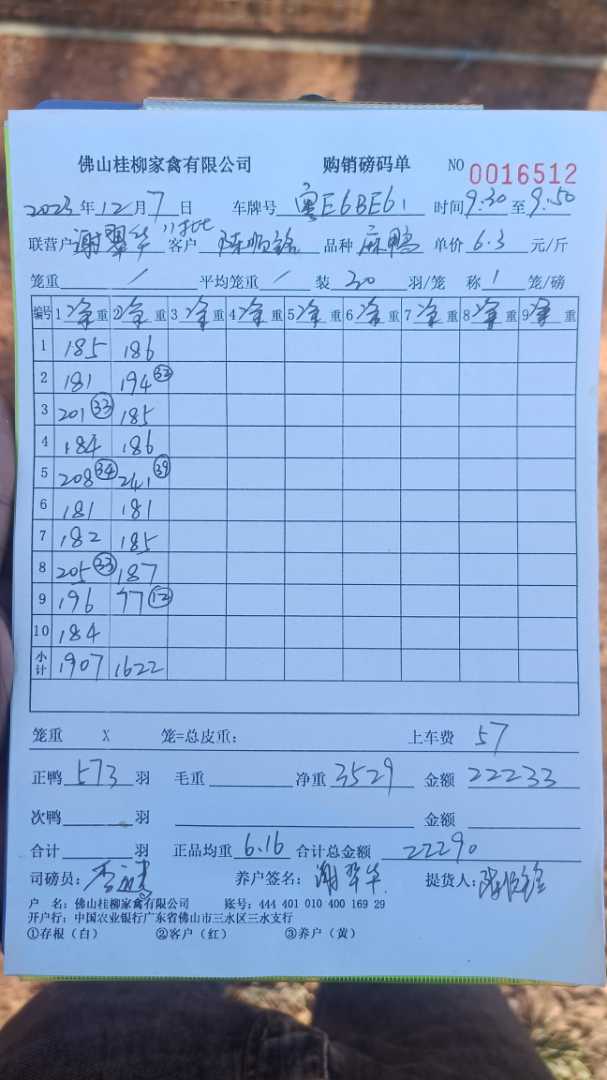 佛山桂柳家禽有限公司 购销磅码单 NO 0016512
2023年12月7日 车牌号 粤E6BE61 时间9:30至9:50
联营户谢翠华 11批 客户 陈顺铭 品种 麻鸭 单价 6.3 元/斤
笼重 / 平均笼重 / 装 30 羽/笼 称 1 笼/磅
编号 1净重 2净重 3净重 4净重 5净重 6净重 7净重 8净重 9净重
1 185 186
2 181 194 (32)
3 201 (33) 185
4 184 186
5 208 (34) 241 (39)
6 181 181
7 182 185
8 205 (33) 187
9 196 77 (12)
10 184
小计 1907 1622
笼重 X 笼=总皮重： 上车费 57
正鸭 573 羽 毛重 净重 3529 金额 22233
次鸭 羽 金额
合计 羽 正品均重 6.16 合计总金额 22290
司磅员： 养户签名：谢翠华 提货人：陈顺铭
户 名：佛山桂柳家禽有限公司 账号：444 401 010 400 169 29
开户行：中国农业银行广东省佛山市三水区三水支行
①存根（白） ②客户（红） ③养户（黄）